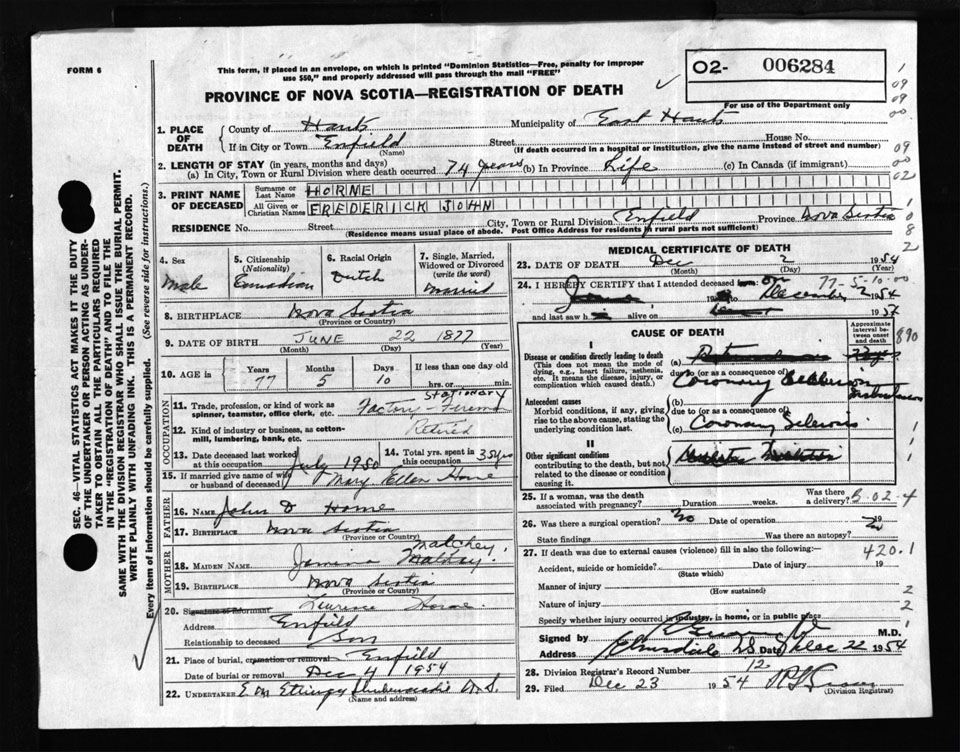 FORM 6
This form, if placed in an envelope, on which is printed "Dominion Statistics—Free, penalty for improper
use $50," and properly addressed will pass through the mail "FREE"
02- 006284
For use of the Department only
PROVINCE OF NOVA SCOTIA—REGISTRATION OF DEATH
SEC. 46—VITAL STATISTICS ACT MAKES IT THE DUTY
OF THE UNDERTAKER OR PERSON ACTING AS UNDER-
TAKER TO OBTAIN ALL THE PARTICULARS REQUIRED
IN THE "REGISTRATION OF DEATH" AND TO FILE THE
SAME WITH THE DIVISION REGISTRAR WHO SHALL ISSUE THE BURIAL PERMIT.
WRITE PLAINLY WITH UNFADING INK. THIS IS A PERMANENT RECORD.
Every item of information should be carefully supplied. (See reverse side for instructions.)
1. PLACE OF DEATH
County of Hants Municipality of East Hants
If in City or Town Enfield Street House No.
(Name) (If death occurred in a hospital or institution, give the name instead of street and number)
2. LENGTH OF STAY (in years, months and days)
(a) In City, Town or Rural Division where death occurred 74 years (b) In Province Life (c) In Canada (if immigrant)
3. PRINT NAME OF DECEASED
Surname or Last Name HORNE
All Given or Christian Names FREDERICK JOHN
RESIDENCE No. Street City, Town or Rural Division Enfield Province Nova Scotia
(Residence means usual place of abode. Post Office Address for residents in rural parts not sufficient)
4. Sex Male
5. Citizenship (Nationality) Canadian
6. Racial Origin Dutch
7. Single, Married, Widowed or Divorced (write the word) Married
8. BIRTHPLACE Nova Scotia
(Province or Country)
9. DATE OF BIRTH JUNE 22 1877
(Month) (Day) (Year)
10. AGE in Years 77 Months 5 Days 10 If less than one day old hrs. or min.
OCCUPATION
11. Trade, profession, or kind of work as spinner, teamster, office clerk, etc. Stationary Factory-
12. Kind of industry or business, as cotton-mill, lumbering, bank, etc. Retired
13. Date deceased last worked at this occupation July 1950
14. Total yrs. spent in this occupation 35 yrs
15. If married give name of wife or husband of deceased Mary Ellen Horne
FATHER
16. NAME John D Horne
17. BIRTHPLACE Nova Scotia
(Province or Country)
MOTHER
18. MAIDEN NAME Matchey
19. BIRTHPLACE Nova Scotia
(Province or Country)
20. Signature of informant Horne
Address Enfield
Relationship to deceased Son
21. Place of burial, cremation or removal Enfield
Date of burial or removal Dec 4 1954
22. UNDERTAKER Shubenacadie N.S.
(Name and address)
MEDICAL CERTIFICATE OF DEATH
23. DATE OF DEATH Dec 2 1954
(Month) (Day) (Year)
77-5-10-00
24. I HEREBY CERTIFY that I attended deceased from
December 2 1954
and last saw h alive on 195
CAUSE OF DEATH
Approximate interval between onset and death
I
Disease or condition directly leading to death (a)
(This does not mean the mode of dying, e.g., heart failure, asthenia, etc. It means the disease, injury, or complication which caused death.)
due to (or as a consequence of)
Coronary
Antecedent causes (b)
Morbid conditions, if any, giving rise to the above cause, stating the underlying condition last.
due to (or as a consequence of)
(c) Coronary Sclerosis
II
Other significant conditions
contributing to the death, but not related to the disease or condition causing it
25. If a woman, was the death associated with pregnancy? Duration weeks. Was there a delivery?
B-02-4
26. Was there a surgical operation? No Date of operation 19
State findings Was there an autopsy?
27. If death was due to external causes (violence) fill in also the following:—
420.1
Accident, suicide or homicide? Date of injury 19
(State which)
Manner of injury
(How sustained)
Nature of injury
Specify whether injury occurred in industry, in home, or in public place
Signed by M.D.
Address NS Date Dec 22 1954
28. Division Registrar's Record Number 12
29. Filed Dec 23 1954
(Division Registrar)